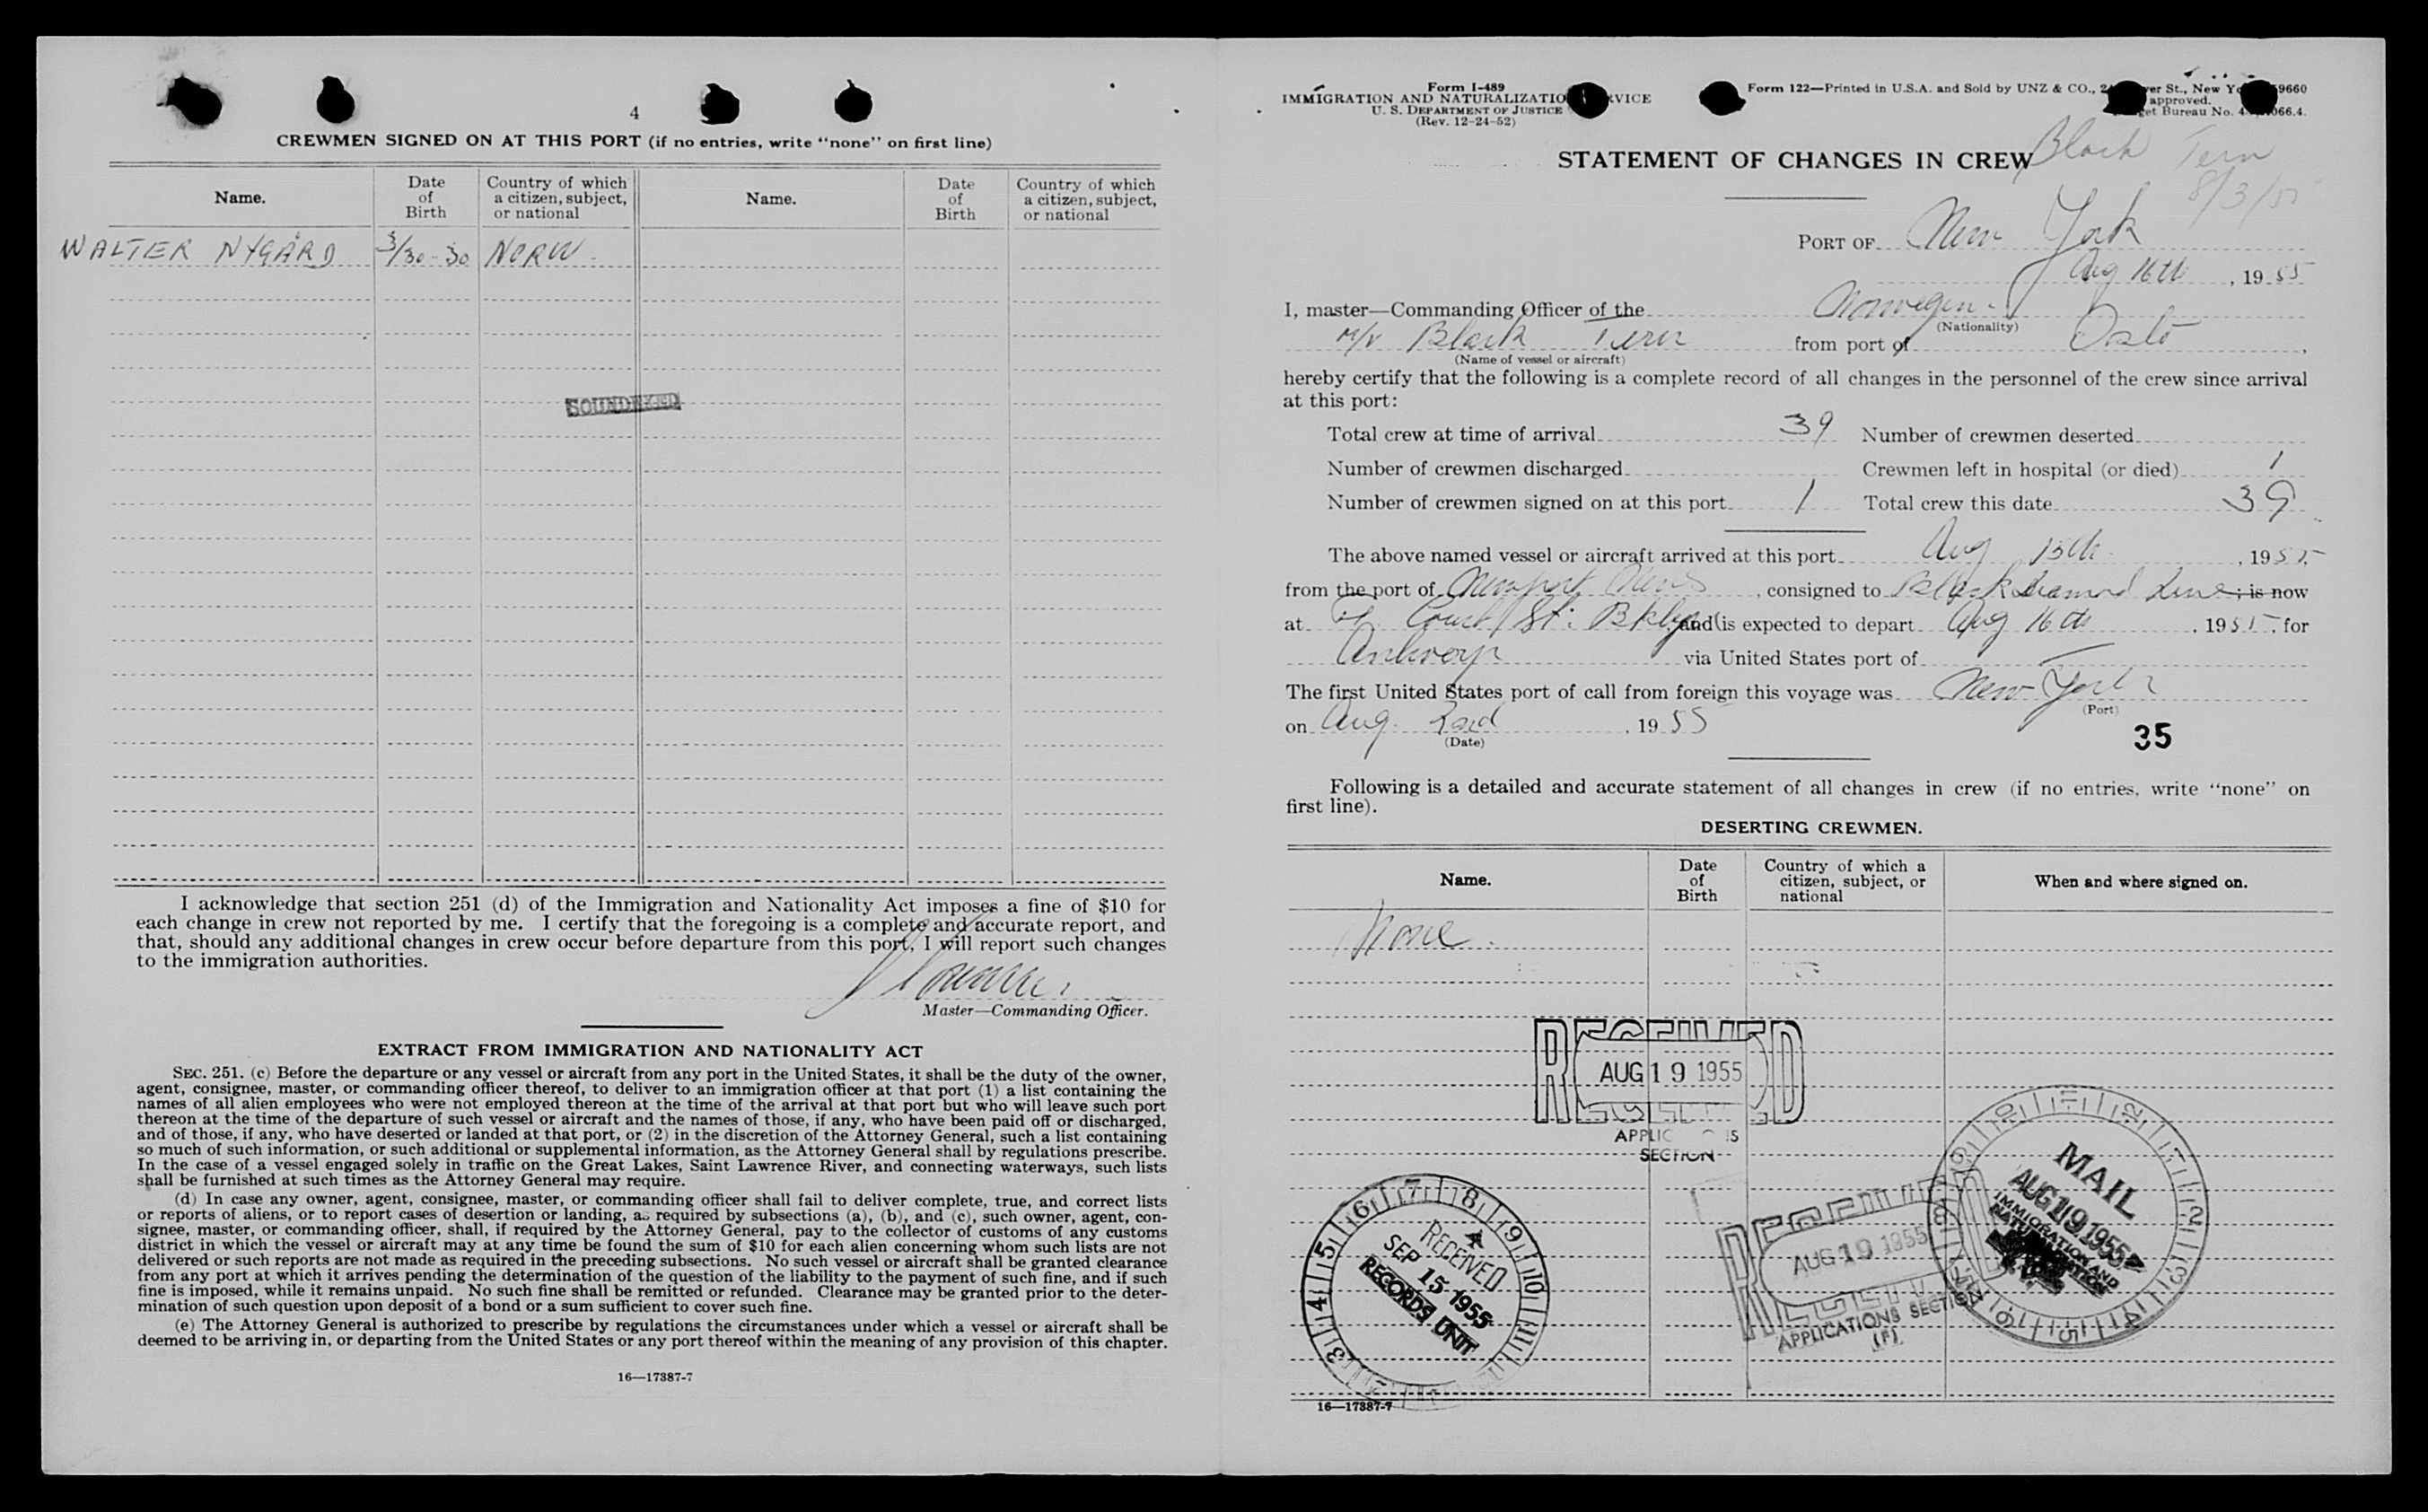 4
CREWMEN SIGNED ON AT THIS PORT (if no entries, write "none" on first line)
Name. Date of Birth Country of which a citizen, subject, or national Name. Date of Birth Country of which a citizen, subject, or national
WALTER NYGÅRD 3/30-30 NORW.
SOUNDEXED
I acknowledge that section 251 (d) of the Immigration and Nationality Act imposes a fine of $10 for
each change in crew not reported by me. I certify that the foregoing is a complete and accurate report, and
that, should any additional changes in crew occur before departure from this port, I will report such changes
to the immigration authorities.
Master—Commanding Officer.
EXTRACT FROM IMMIGRATION AND NATIONALITY ACT
SEC. 251. (c) Before the departure or any vessel or aircraft from any port in the United States, it shall be the duty of the owner,
agent, consignee, master, or commanding officer thereof, to deliver to an immigration officer at that port (1) a list containing the
names of all alien employees who were not employed thereon at the time of the arrival at that port but who will leave such port
thereon at the time of the departure of such vessel or aircraft and the names of those, if any, who have been paid off or discharged,
and of those, if any, who have deserted or landed at that port, or (2) in the discretion of the Attorney General, such a list containing
so much of such information, or such additional or supplemental information, as the Attorney General shall by regulations prescribe.
In the case of a vessel engaged solely in traffic on the Great Lakes, Saint Lawrence River, and connecting waterways, such lists
shall be furnished at such times as the Attorney General may require.
(d) In case any owner, agent, consignee, master, or commanding officer shall fail to deliver complete, true, and correct lists
or reports of aliens, or to report cases of desertion or landing, as required by subsections (a), (b), and (c), such owner, agent, con-
signee, master, or commanding officer, shall, if required by the Attorney General, pay to the collector of customs of any customs
district in which the vessel or aircraft may at any time be found the sum of $10 for each alien concerning whom such lists are not
delivered or such reports are not made as required in the preceding subsections. No such vessel or aircraft shall be granted clearance
from any port at which it arrives pending the determination of the question of the liability to the payment of such fine, and if such
fine is imposed, while it remains unpaid. No such fine shall be remitted or refunded. Clearance may be granted prior to the deter-
mination of such question upon deposit of a bond or a sum sufficient to cover such fine.
(e) The Attorney General is authorized to prescribe by regulations the circumstances under which a vessel or aircraft shall be
deemed to be arriving in, or departing from the United States or any port thereof within the meaning of any provision of this chapter.
16—17387-7
Form I-489
IMMIGRATION AND NATURALIZATIO VICE
U. S. DEPARTMENT OF JUSTICE
(Rev. 12-24-52)
Form 122—Printed in U.S.A. and Sold by UNZ & CO., St., New Yo 9660
approved.
get Bureau No. 4 066.4.
STATEMENT OF CHANGES IN CREW
Black Tern
8/3/55
PORT OF New York
Aug 16th, 1955
I, master—Commanding Officer of the Norwegian
(Nationality)
m/v Black Tern from port of Oslo,
(Name of vessel or aircraft)
hereby certify that the following is a complete record of all changes in the personnel of the crew since arrival
at this port:
Total crew at time of arrival 39 Number of crewmen deserted
Number of crewmen discharged Crewmen left in hospital (or died) 1
Number of crewmen signed on at this port 1 Total crew this date 39
The above named vessel or aircraft arrived at this port Aug 15th, 1955
from the port of Newport News, consigned to Black Diamond Line; is now
at Court St: Bklyn and is expected to depart Aug 16th, 1955, for
Antwerp via United States port of
The first United States port of call from foreign this voyage was New York
(Port)
on Aug. 3rd, 1955
(Date)
35
Following is a detailed and accurate statement of all changes in crew (if no entries, write "none" on
first line).
DESERTING CREWMEN.
Name. Date of Birth Country of which a citizen, subject, or national When and where signed on.
None.
RECEIVED
AUG 19 1955
SECTION
RECEIVED
SEP 15 1955
RECORDS UNIT
RECEIVED
AUG 19 1955
APPLICATIONS SECTION
(F)
MAIL
AUG 19 1955
IMMIGRATION AND
NATURALIZATION
16—17387-7